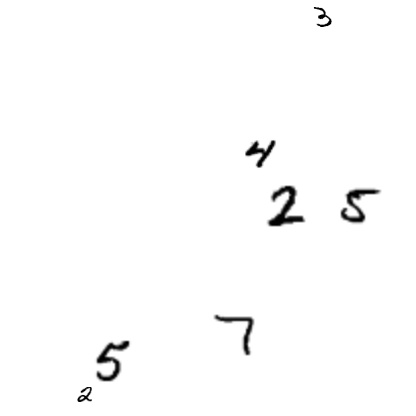 3
4
2 5
7
5
2